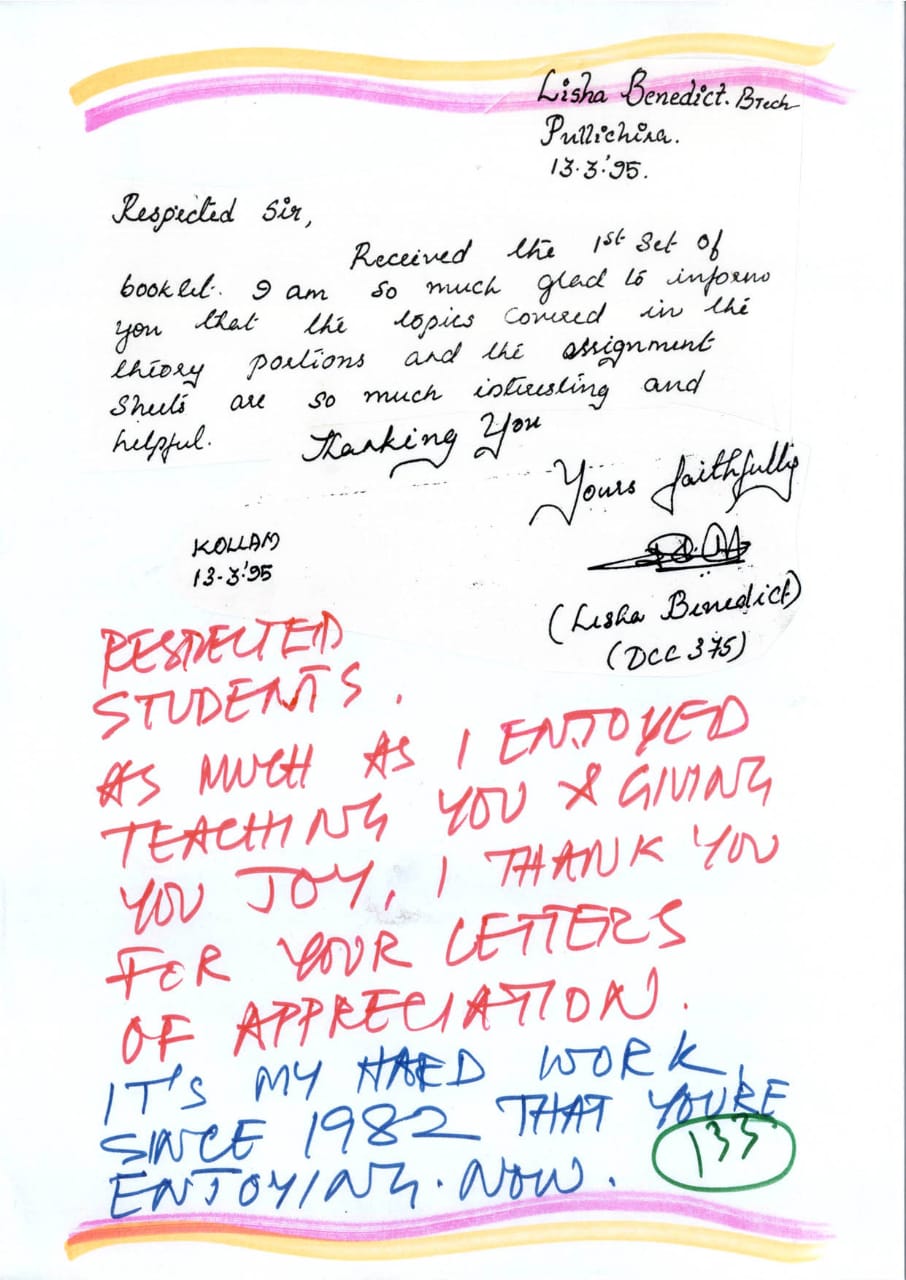 Lisha Benedict. BTech
Pullichira.
13.3.'95.
Respected Sir,
Received the 1st Set of
booklet. I am so much glad to inform
you that the topics covered in the
theory portions and the assignment
Sheets are so much interesting and
helpful. Thanking You
Yours faithfully
KOLLAM
13-3-'95
(Lisha Benedict)
(DCC 375)
RESPECTED
STUDENTS.
AS MUCH AS I ENJOYED
TEACHING YOU & GIVING
YOU JOY, I THANK YOU
FOR YOUR LETTERS
OF APPRECIATION.
IT'S MY HARD WORK
SINCE 1982 THAT YOU'RE
ENJOYING. NOW.
133